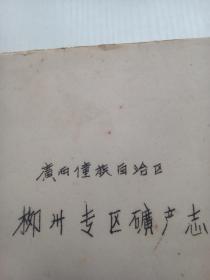 廣西僮族自治区
柳州专区礦产志